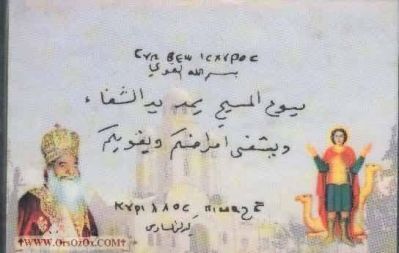 ⲤⲨⲚ ⲐⲈⲰ ⲒⲤⲬⲨⲢⲞⲤ
بسم الله القوي
يسوع المسيح يمد يد الشفاء
ويشفى امراضكم ويقويكم
ⲔⲨⲢⲒⲖⲖⲞⲤ
✝WWW.OrSOzOx.COM✝